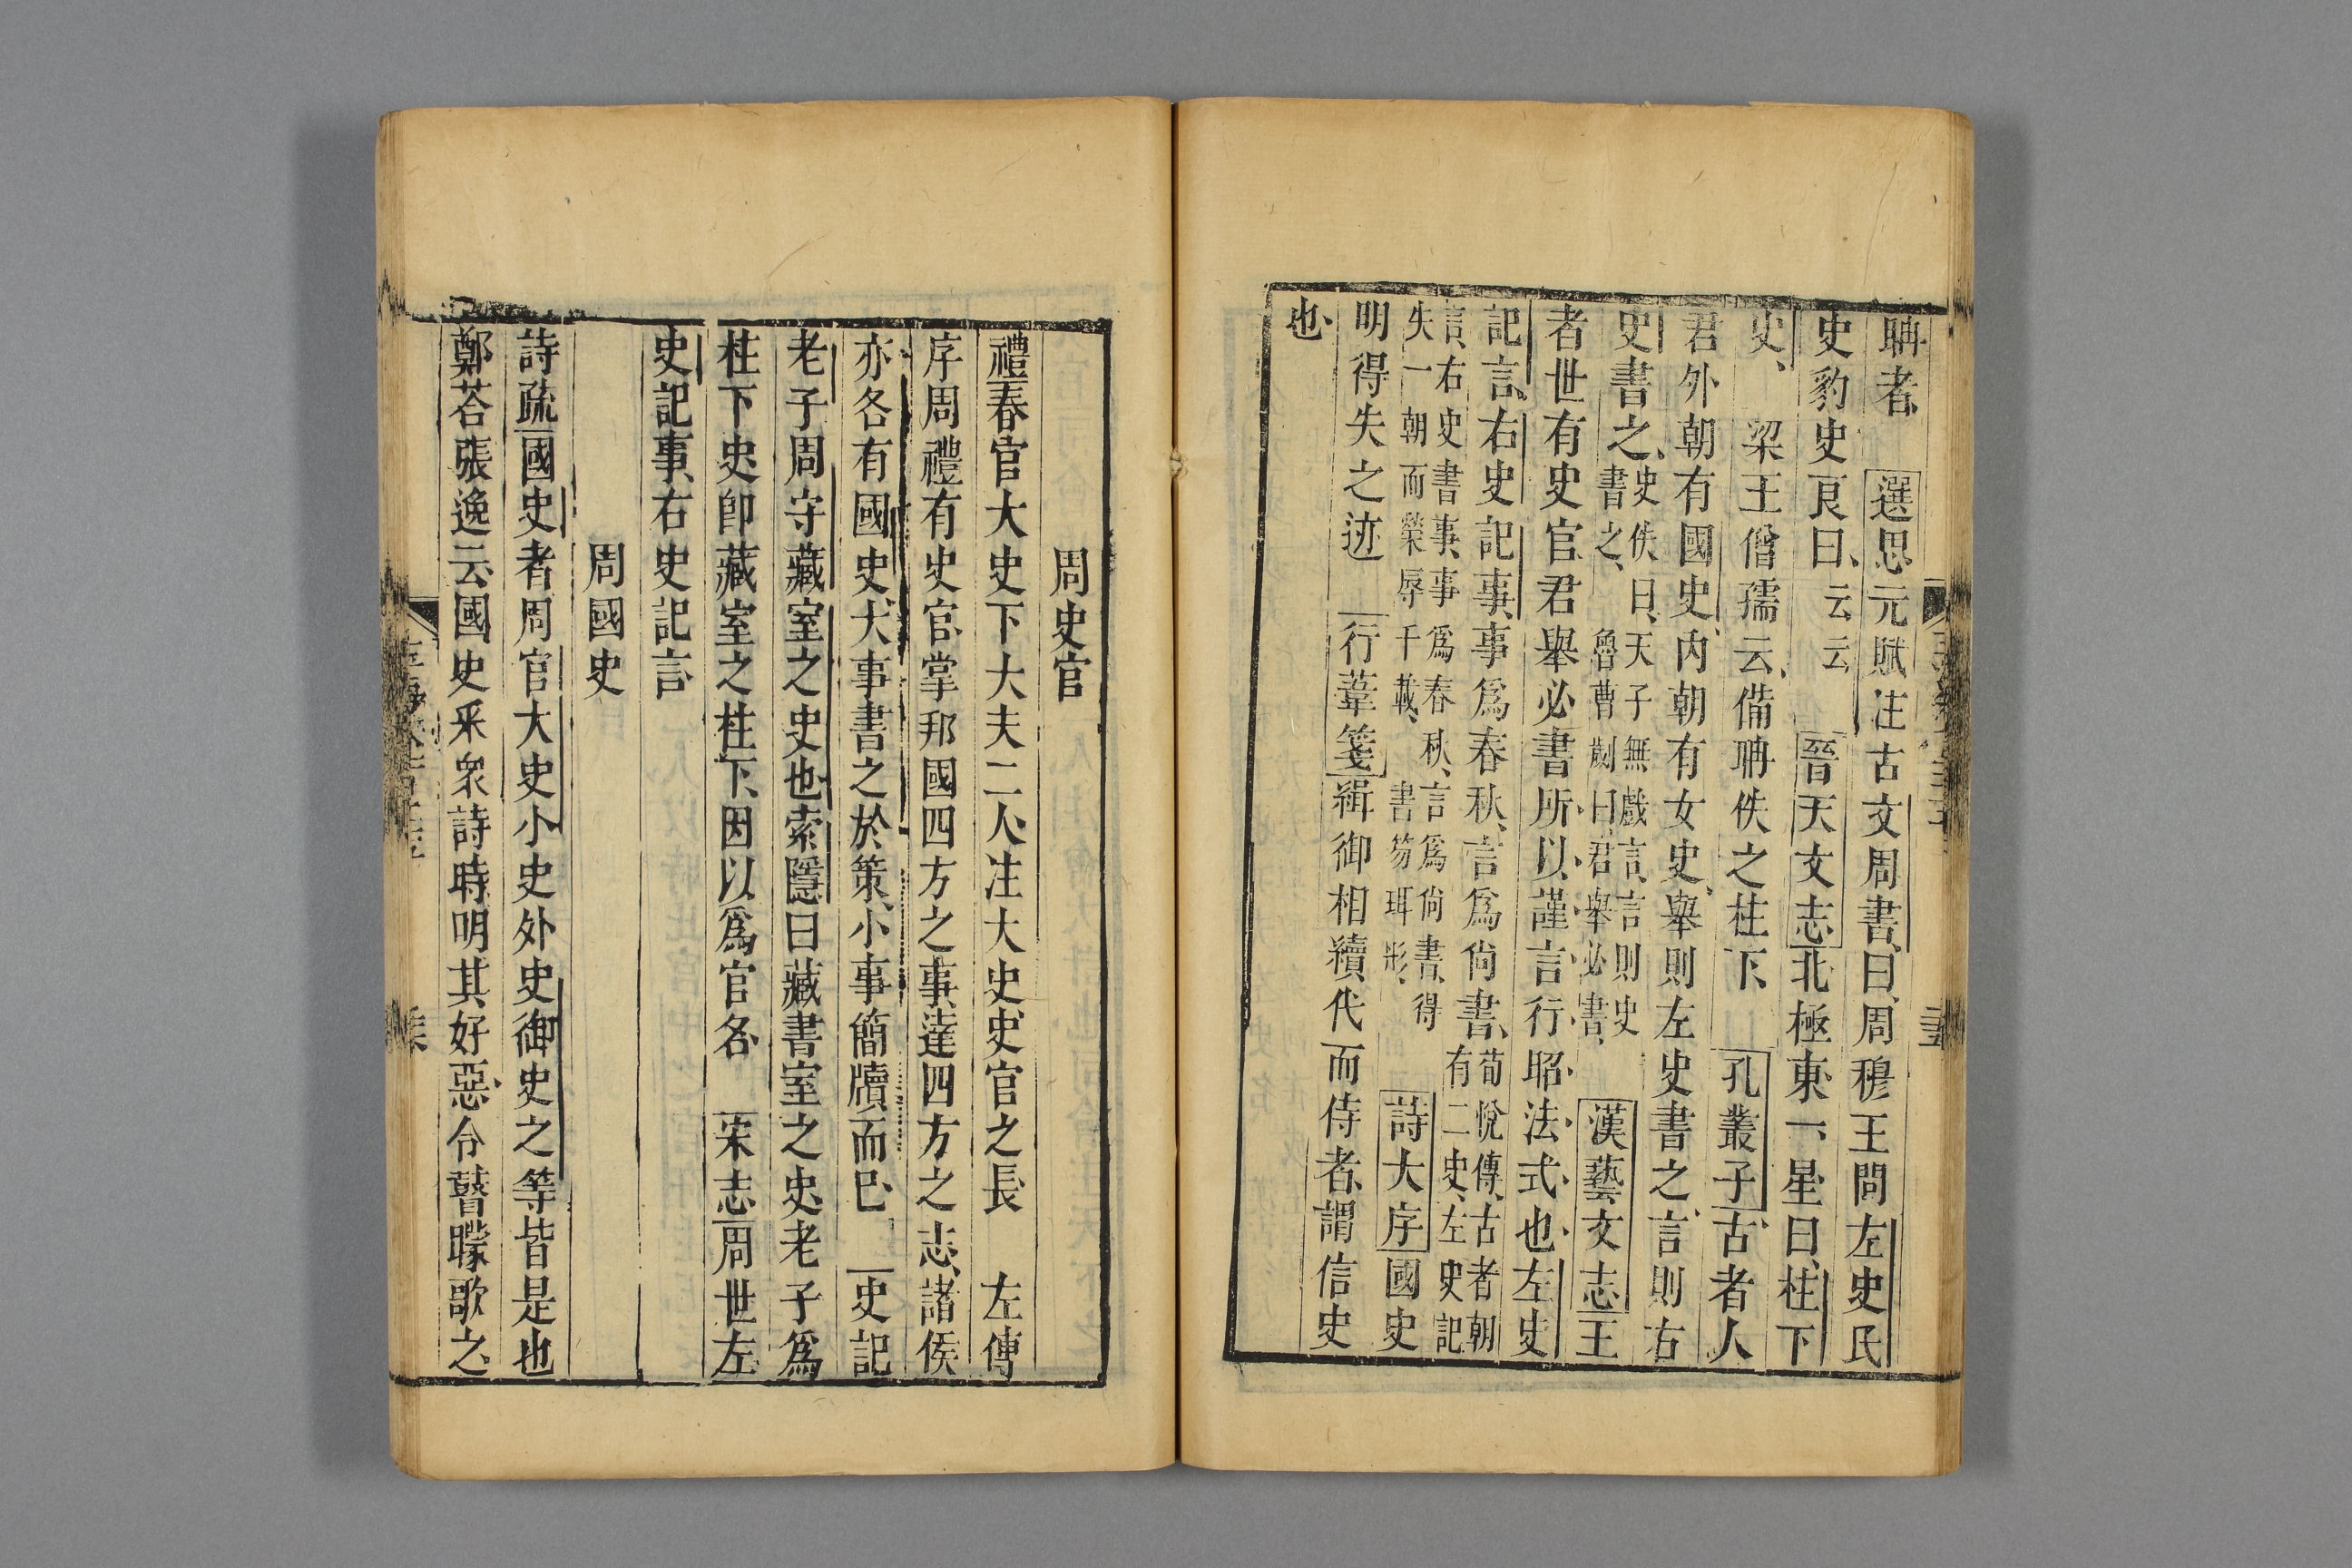 聃者 選思元賦注古文周書曰周穆王問左史氏
史豹史良曰云云 晉天文志北極東一星曰柱下
史 梁王僧孺云備聃佚之柱下 孔叢子古者人
君外朝有國史內朝有女史舉則左史書之言則右
史書之史佚曰天子無戲言言則史
書之魯曹劌曰君舉必書 漢藝文志王
者世有史官君舉必書所以謹言行昭法式也左史
記言右史記事事爲春秋言爲尚書荀悅傳古者朝
有二史左史記
言右史書事事爲春秋言爲尚書得
失一朝而榮辱千載書笏珥彤 詩大序國史
明得失之迹 行葦箋緝御相續代而侍者謂信史
也
周史官
禮春官大史下大夫二人注大史史官之長 左傳
序周禮有史官掌邦國四方之事達四方之志諸侯
亦各有國史大事書之於策小事簡牘而已 史記
老子周守藏室之史也索隱曰藏書室之史老子爲
柱下史卽藏室之柱下因以爲官名 宋志周世左
史記事右史記言
周國史
詩疏國史者周官大史小史外史御史之等皆是也
鄭荅張逸云國史采衆詩時明其好惡令瞽矇歌之